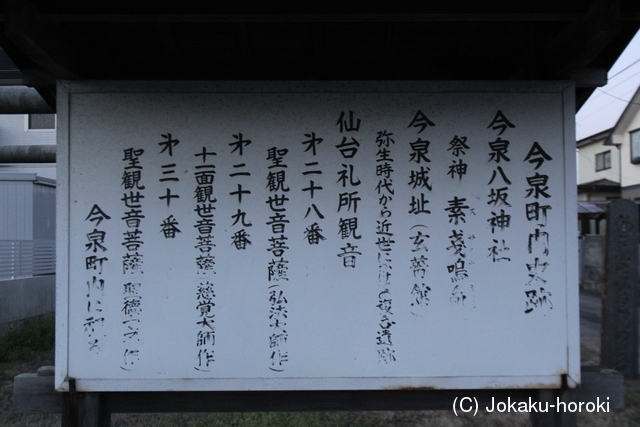 今泉町内史跡
今泉八坂神社
祭神 素戔嗚
今泉城址(玄蕃館)
弥生時代から近世に 複合遺跡
仙台札所観音
㐧二十八番
聖観世音菩薩(弘法大師作)
㐧二十九番
十一面観世音菩薩(慈覚大師作)
㐧三十番
聖観世音菩薩(聖徳太子作)
今泉町内
(C) Jokaku-horoki